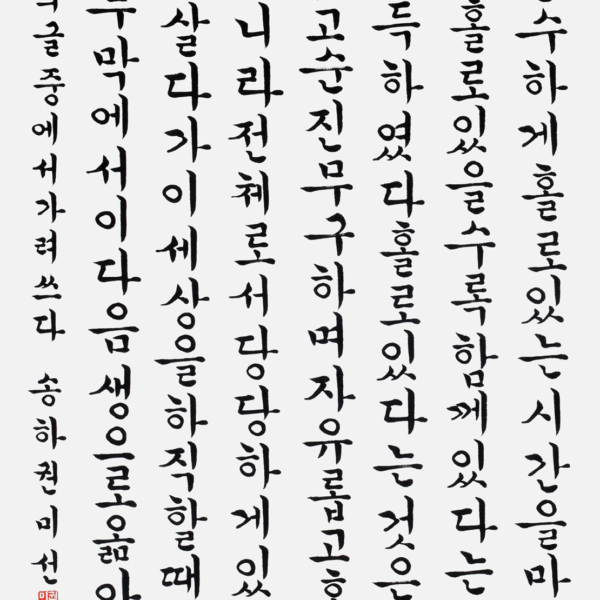 수하게홀로있는시간을마
홀로있을수록함께있다는
득하였다홀로있다는것은
고순진무구하며자유롭고
니라전체로서당당하게있
살다가이세상을하직할때
막에서이다음생으로옮아
글중에서가려쓰다 송하권미선